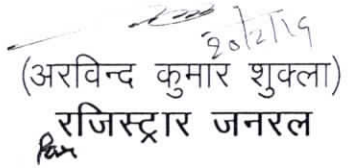 20/2/19
(अरविन्द कुमार शुक्ला)
रजिस्ट्रार जनरल